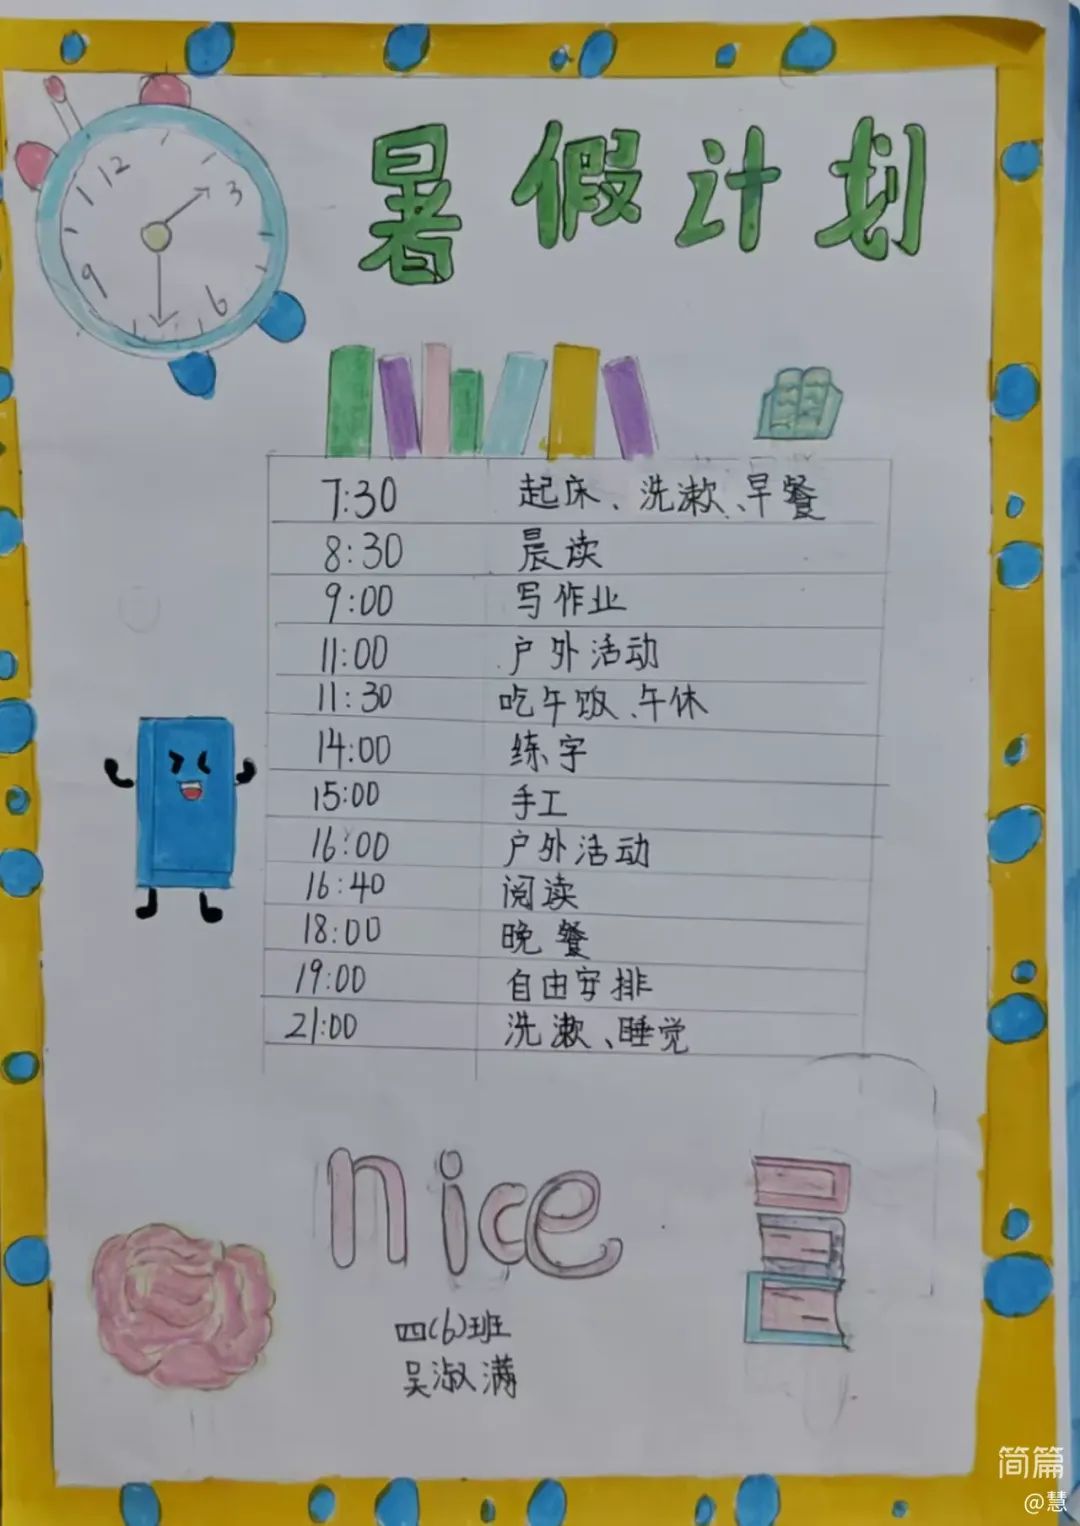 暑假计划
12
3
9
6
7:30 起床、洗漱、早餐
8:30 晨读
9:00 写作业
11:00 户外活动
11:30 吃午饭、午休
14:00 练字
15:00 手工
16:00 户外活动
16:40 阅读
18:00 晚餐
19:00 自由安排
21:00 洗漱、睡觉
nice
四(6)班
吴淑满
简篇
@慧